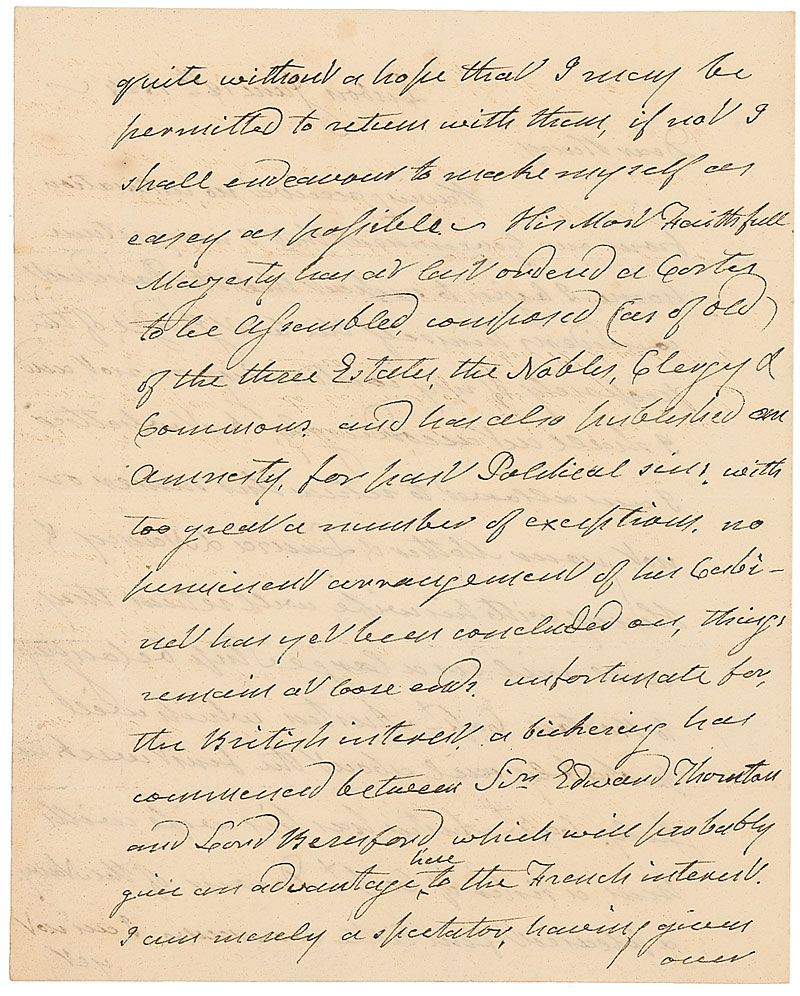 quite without a hope that I may be
permitted to return with them, if not I
shall endeavour to make myself as
easey as possible. His Most Faithfull
Magesty has at last ordered a Cortes
to be assembled, composed (as of old)
of the three Estates, the Nobles, Clergy &
Commons, and has also published an
Amnesty, for past Political sins, with
too great a number of exceptions. no
perminent arrangement of his Cabi-
net has yet been concluded on, things
remain at loose ends. unfortunate for,
the British interest. a bickering has
commenced between Sir Edward Thornton
and Lord Beresford, which will probably
give an advantage, here to the French interest.
I am merely a spectator, having given
over